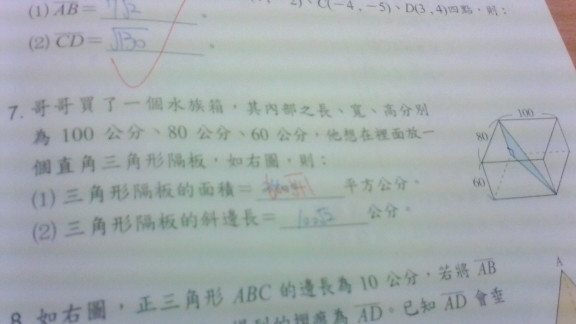 (1) AB = 7√2 。
C(-4,-5)、D(3,4)四點,則:
(2) CD = √130 。
7. 哥哥買了一個水族箱,其內部之長、寬、高分別
為 100 公分、80 公分、60 公分,他想在裡面放一
個直角三角形隔板,如右圖,則:
(1) 三角形隔板的面積= 平方公分。
(2) 三角形隔板的斜邊長= 100√2 公分。
100
80
60
8. 如右圖,正三角形 ABC 的邊長為 10 公分,若將 AB
為 AD,已知 AD 會垂
A